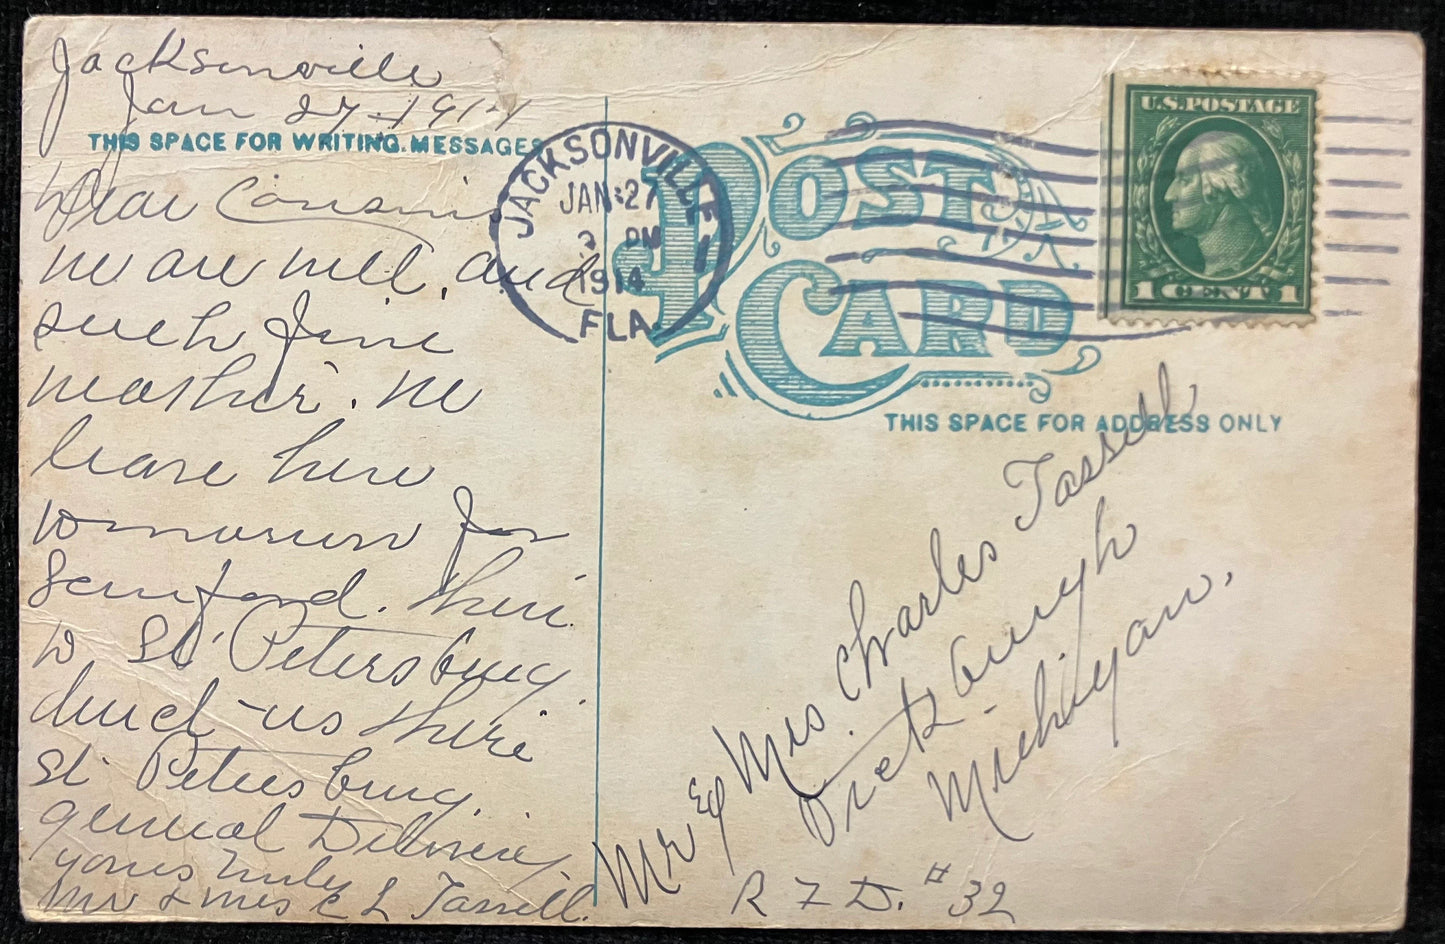 Jacksonville
Jan 27-1914
THIS SPACE FOR WRITING MESSAGES
Dear Cousins
we are well. and
such fine
weather. we
leave here
tomorrow for
Sanford. then
to St Petersburg
direct-us there
St Petersburg.
general Delivery
yours truly
Mr & Mrs C L Tassell.
JACKSONVILLE
JAN 27
PM
1914
FLA.
1
POST
CARD
U.S. POSTAGE
1 CENT 1
THIS SPACE FOR ADDRESS ONLY
Mr & Mrs Charles Tassell
Vicksburgh
Michigan.
R F D. # 32